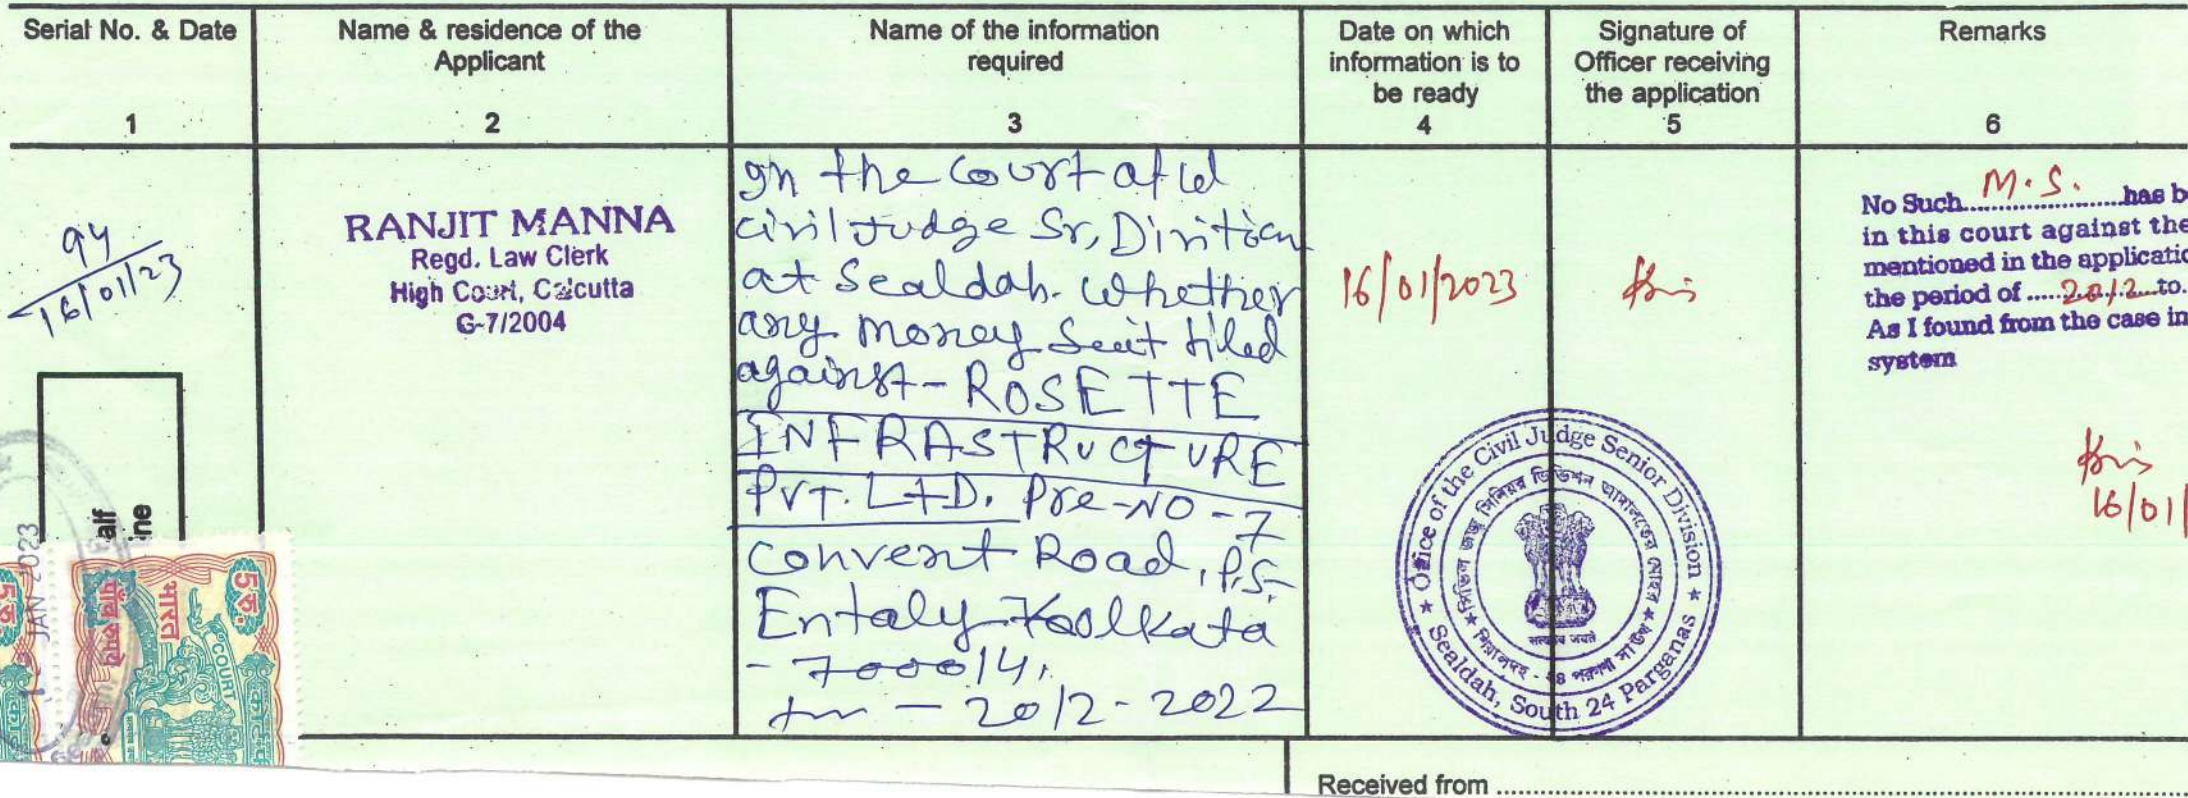 Serial No. & Date
1
Name & residence of the
Applicant
2
Name of the information
required
3
Date on which
information is to
be ready
4
Signature of
Officer receiving
the application
5
Remarks
6
94
16/01/23
RANJIT MANNA
Regd. Law Clerk
High Court, Calcutta
G-7/2004
In the Court of Ld
Civil Judge Sr, Divition
at Sealdah. Whether
any money Suit filed
against - ROSETTE
INFRASTRUCTURE
PVT. LTD. Pre-NO-7
Convent Road, P.S.
Entaly Koolkata
- 700014,
- 2012-2022
16/01/2023
No Such M.S. has b
in this court against the
mentioned in the applicatio
the period of 2012 to.
As I found from the case in
system
16/01/
Office of the Civil Judge Senior Division
সিভিল জজ সিনিয়র ডিভিশন আদালতের মোহর
Sealdah, South 24 Parganas
alf
ine
JAN 2023
5रु.
भारत
पाँच रुपये
COURT
5रु.
Received from